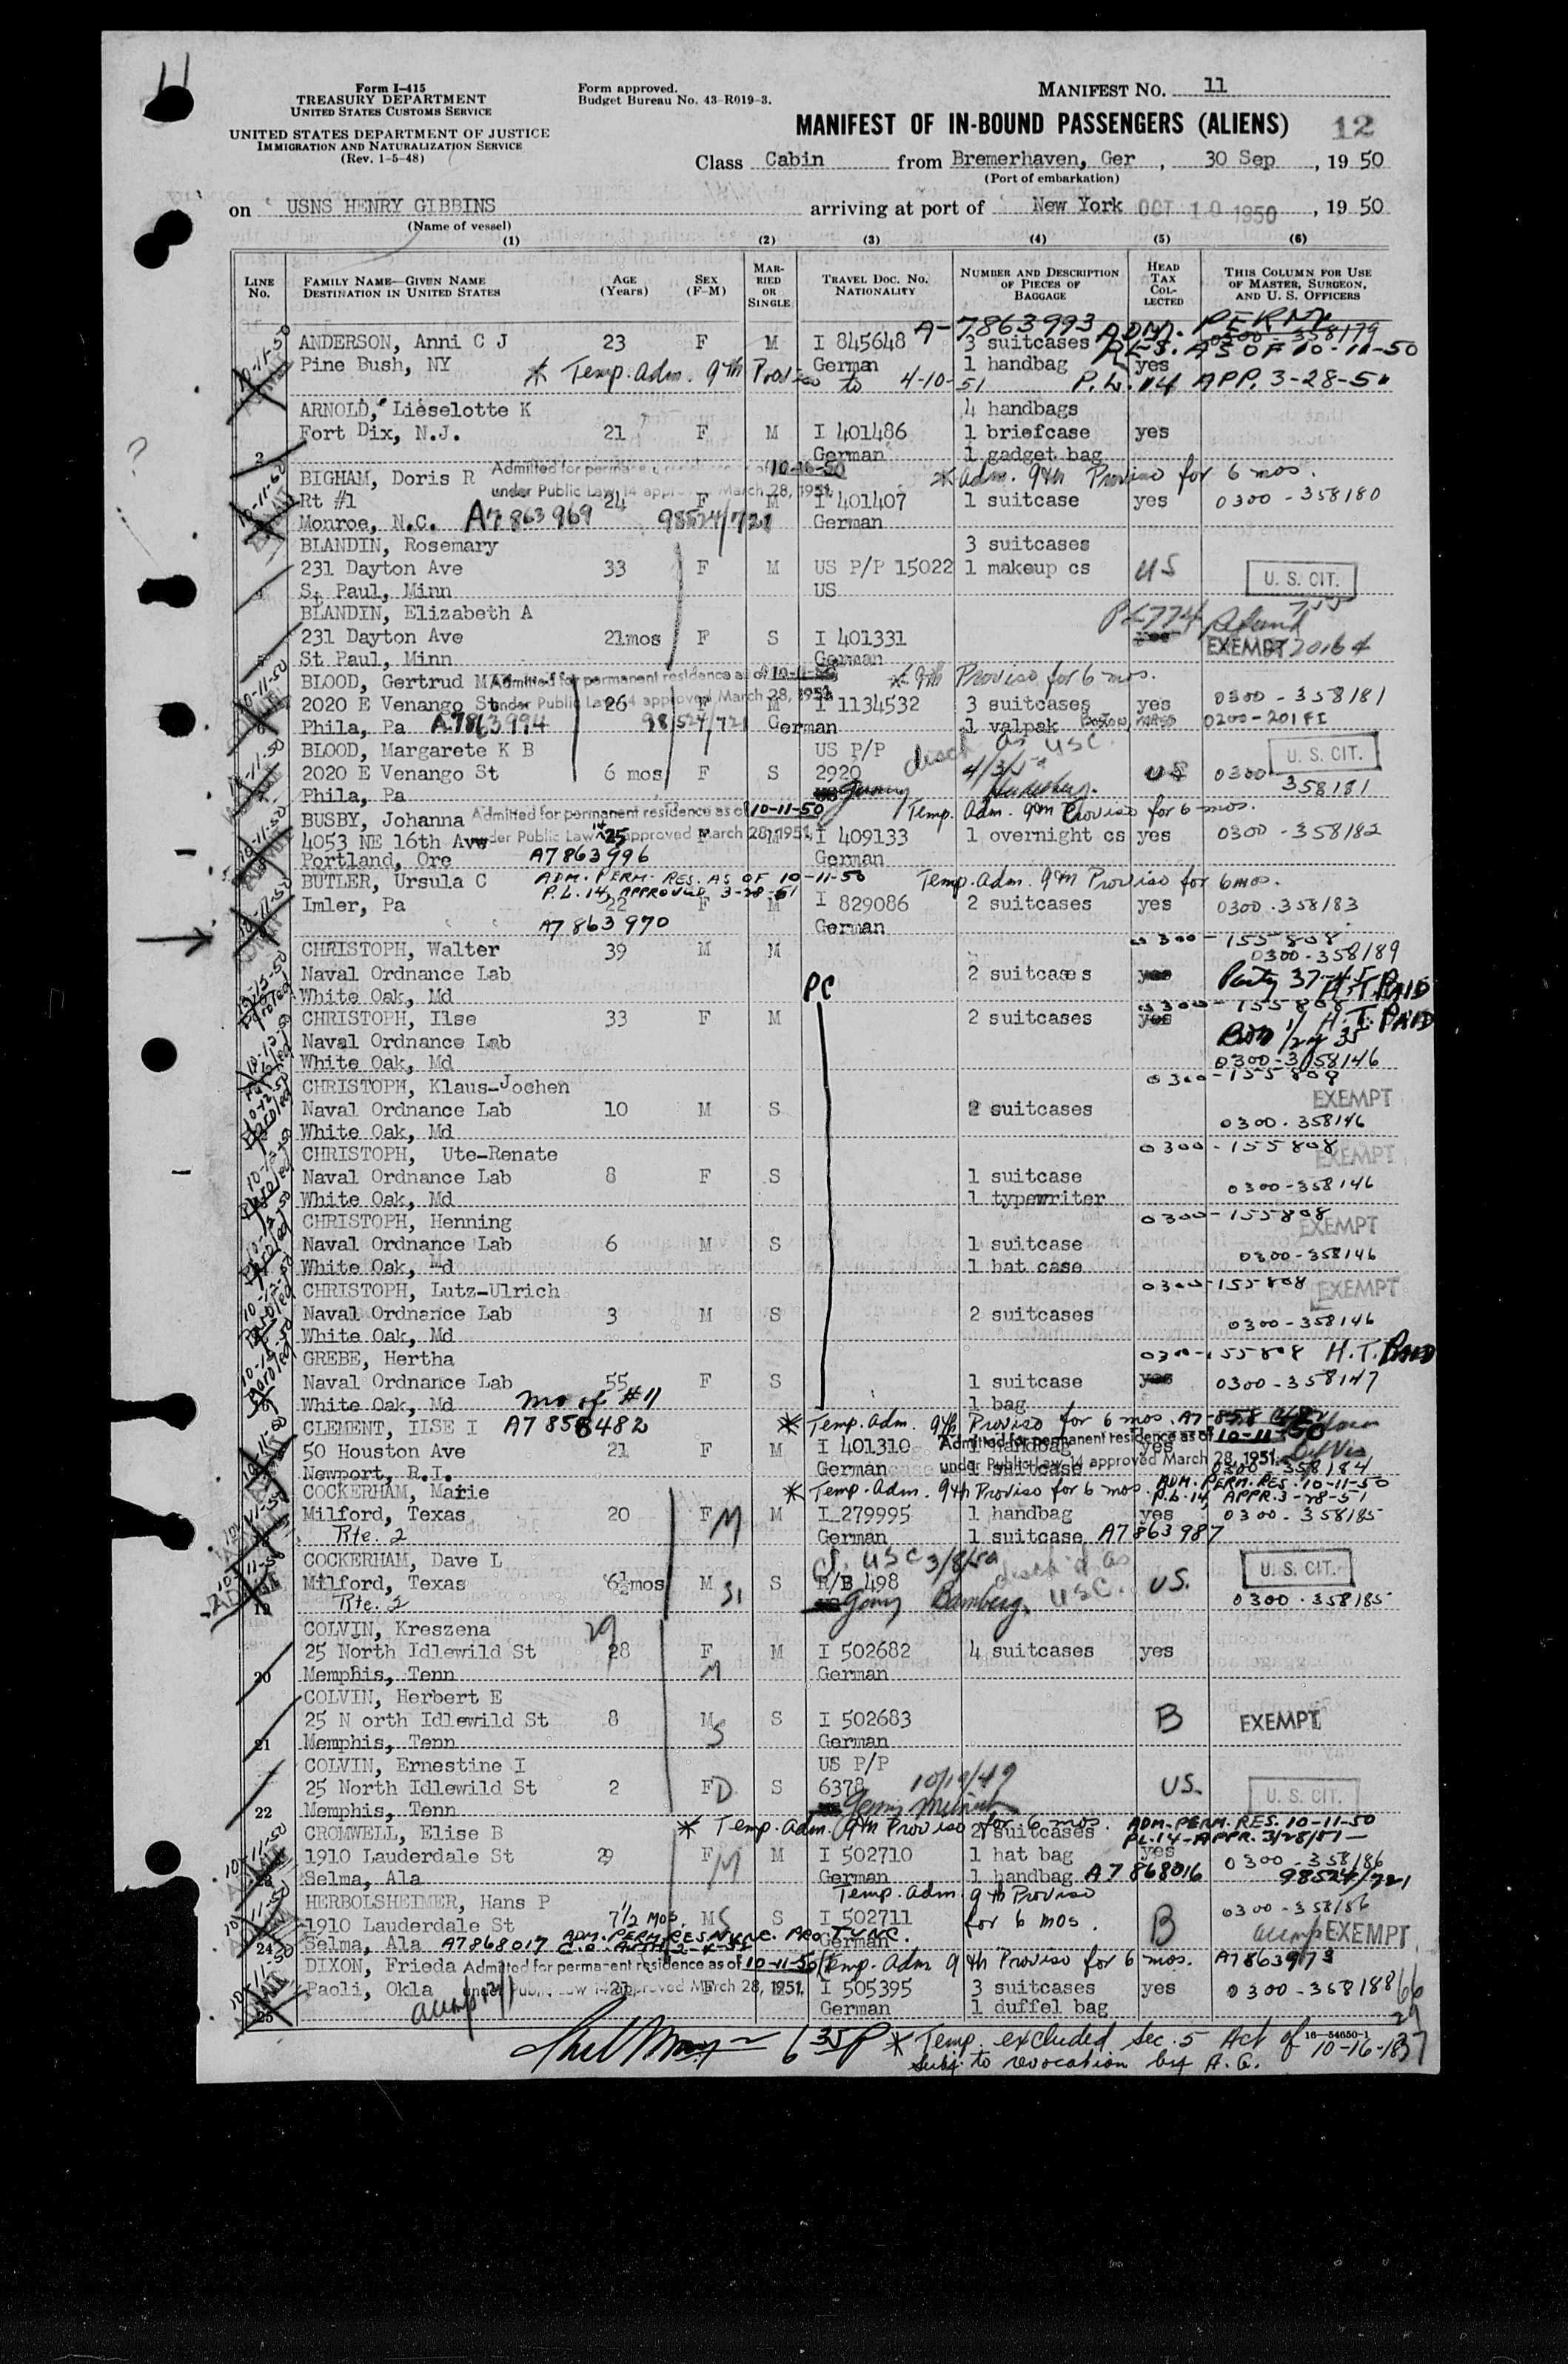 11
Form I-415
TREASURY DEPARTMENT
UNITED STATES CUSTOMS SERVICE
UNITED STATES DEPARTMENT OF JUSTICE
IMMIGRATION AND NATURALIZATION SERVICE
(Rev. 1-5-48)
Form approved.
Budget Bureau No. 43-R019-3.
MANIFEST NO. 11
MANIFEST OF IN-BOUND PASSENGERS (ALIENS) 12
Class Cabin from Bremerhaven, Ger , 30 Sep , 19 50
(Port of embarkation)
on USNS HENRY GIBBINS arriving at port of New York OCT 10 1950 , 19 50
(Name of vessel)
(1) (2) (3) (4) (5) (6)
LINE NO. FAMILY NAME—GIVEN NAME DESTINATION IN UNITED STATES AGE (Years) SEX (F-M) MARRIED OR SINGLE TRAVEL DOC. NO. NATIONALITY NUMBER AND DESCRIPTION OF PIECES OF BAGGAGE HEAD TAX COLLECTED THIS COLUMN FOR USE OF MASTER, SURGEON, AND U. S. OFFICERS
A-7863993 ADM. PERM
ANDERSON, Anni C J 23 F M I 845648 3 suitcases 0300-358179
RES. AS OF 10-11-50
Pine Bush, NY German 1 handbag yes
* Temp. Adm. 9th Proviso to 4-10-51 P.L. 14 APP. 3-28-51
ARNOLD, Lieselotte K 4 handbags
Fort Dix, N.J. 21 F M I 401486 1 briefcase yes
2 German 1 gadget bag
BIGHAM, Doris R Admitted for permanent residence as of 10-16-50 * Adm. 9th Proviso for 6 mos.
under Public Law 14 approved March 28, 1951
Rt #1 24 F M I 401407 1 suitcase yes 0300-358180
Monroe, N.C. A7863969 98524/721 German
BLANDIN, Rosemary 3 suitcases
231 Dayton Ave 33 F M US P/P 15022 1 makeup cs US U. S. CIT.
St Paul, Minn US
BLANDIN, Elizabeth A PL 774
231 Dayton Ave 21mos F S I 401331 EXEMPT
St Paul, Minn German
BLOOD, Gertrud M Admitted for permanent residence as of 10-11-50 * 9th Proviso for 6 mos.
under Public Law 14 approved March 28, 1951
2020 E Venango St 26 F M I 1134532 3 suitcases yes 0300-358181
Phila, Pa A7863994 98524/721 German 1 valpak 0200-201FI
BLOOD, Margarete K B US P/P disch as USC. U. S. CIT.
2020 E Venango St 6 mos F S 2920 US 0300
Phila, Pa Germy 358181
BUSBY, Johanna Admitted for permanent residence as of 10-11-50 Temp. Adm. 9th Proviso for 6 mos.
under Public Law 14 approved March 28, 1951
4053 NE 16th Ave 25 F M I 409133 1 overnight cs yes 0300-358182
Portland, Ore A7863996 German
BUTLER, Ursula C ADM. PERM. RES. AS OF 10-11-50 Temp. Adm. 9th Proviso for 6 mos.
P.L. 14, APPROVED 3-28-51
Imler, Pa 22 F M I 829086 2 suitcases yes 0300.358183
A7863970 German
0300-155808
CHRISTOPH, Walter 39 M M 0300-358189
Naval Ordnance Lab 2 suitcases yes
White Oak, Md PC H.T. PAID
0300-155808
CHRISTOPH, Ilse 33 F M 2 suitcases yes H.T. PAID
Naval Ordnance Lab
White Oak, Md 0300-358146
CHRISTOPH, Klaus-Jochen 0300-155808 EXEMPT
Naval Ordnance Lab 10 M S 2 suitcases
White Oak, Md 0300.358146
CHRISTOPH, Ute-Renate 0300-155808 EXEMPT
Naval Ordnance Lab 8 F S 1 suitcase
White Oak, Md 1 typewriter 0300-358146
CHRISTOPH, Henning 0300-155808 EXEMPT
Naval Ordnance Lab 6 M S 1 suitcase
White Oak, Md 1 hat case 0300-358146
CHRISTOPH, Lutz-Ulrich 0300-155808 EXEMPT
Naval Ordnance Lab 3 M S 2 suitcases
White Oak, Md 0300-358146
GREBE, Hertha 0300-155808 H.T. PAID
Naval Ordnance Lab 55 F S 1 suitcase yes 0300-358147
White Oak, Md mo of #11 1 bag
CLEMENT, IlSE I A7858482 * Temp. Adm. 9th Proviso for 6 mos.
50 Houston Ave 21 F M I 401310 1 handbag yes
Admitted for permanent residence as of 10-11-50
under Public Law 14 approved March 28, 1951
Newport, R.I. German 1 suitcase 0300-358184
COCKERHAM, Marie * Temp. Adm. 9th Proviso for 6 mos. ADM. PERM. RES. 10-11-50
P.L. 14, APPR. 3-28-51
Milford, Texas 20 F M M I 279995 1 handbag yes 0300-358185
Rte. 2 German 1 suitcase A7863987
COCKERHAM, Dave L USC 3/8/50 disch'd as USC. U. S. CIT.
Milford, Texas 6½mos M S R/B 498 US.
19 Rte. 2 Germy Bamberg 0300.358185
COLVIN, Kreszena 29
25 North Idlewild St 28 F M I 502682 4 suitcases yes
20 Memphis, Tenn M German
COLVIN, Herbert E
25 N orth Idlewild St 8 M S I 502683 B EXEMPT
21 Memphis, Tenn S German
COLVIN, Ernestine I US P/P
25 North Idlewild St 2 F D S 6378 10/19/49 US. U. S. CIT.
22 Memphis, Tenn Germ Munich
* Temp. Adm. 9th Proviso for 6 mos. ADM. PERM. RES. 10-11-50
CROMWELL, Elise B 2 suitcases PL. 14-APPR. 3/28/51
1910 Lauderdale St 29 F M M I 502710 1 hat bag yes 0300-358186
Selma, Ala German 1 handbag A7868016 98524/721
HERBOLSHEIMER, Hans P Temp. Adm. 9th Proviso
1910 Lauderdale St 7½ MOS. M S S I 502711 for 6 mos. B 0300-358186
24 Selma, Ala A7868017 ADM. PERM. RES NUNC. PRO TUNC. German EXEMPT
DIXON, Frieda Admitted for permanent residence as of 10-11-50 Temp. Adm 9th Proviso for 6 mos. A7863973
under Public Law 14 approved March 28, 1951
Paoli, Okla 21 F M I 505395 3 suitcases yes 0300-358188
25 German 1 duffel bag
635P * Temp. excluded Sec. 5 Act of 10-16-18
16—54650-1
37
Subj. to revocation by A.G.